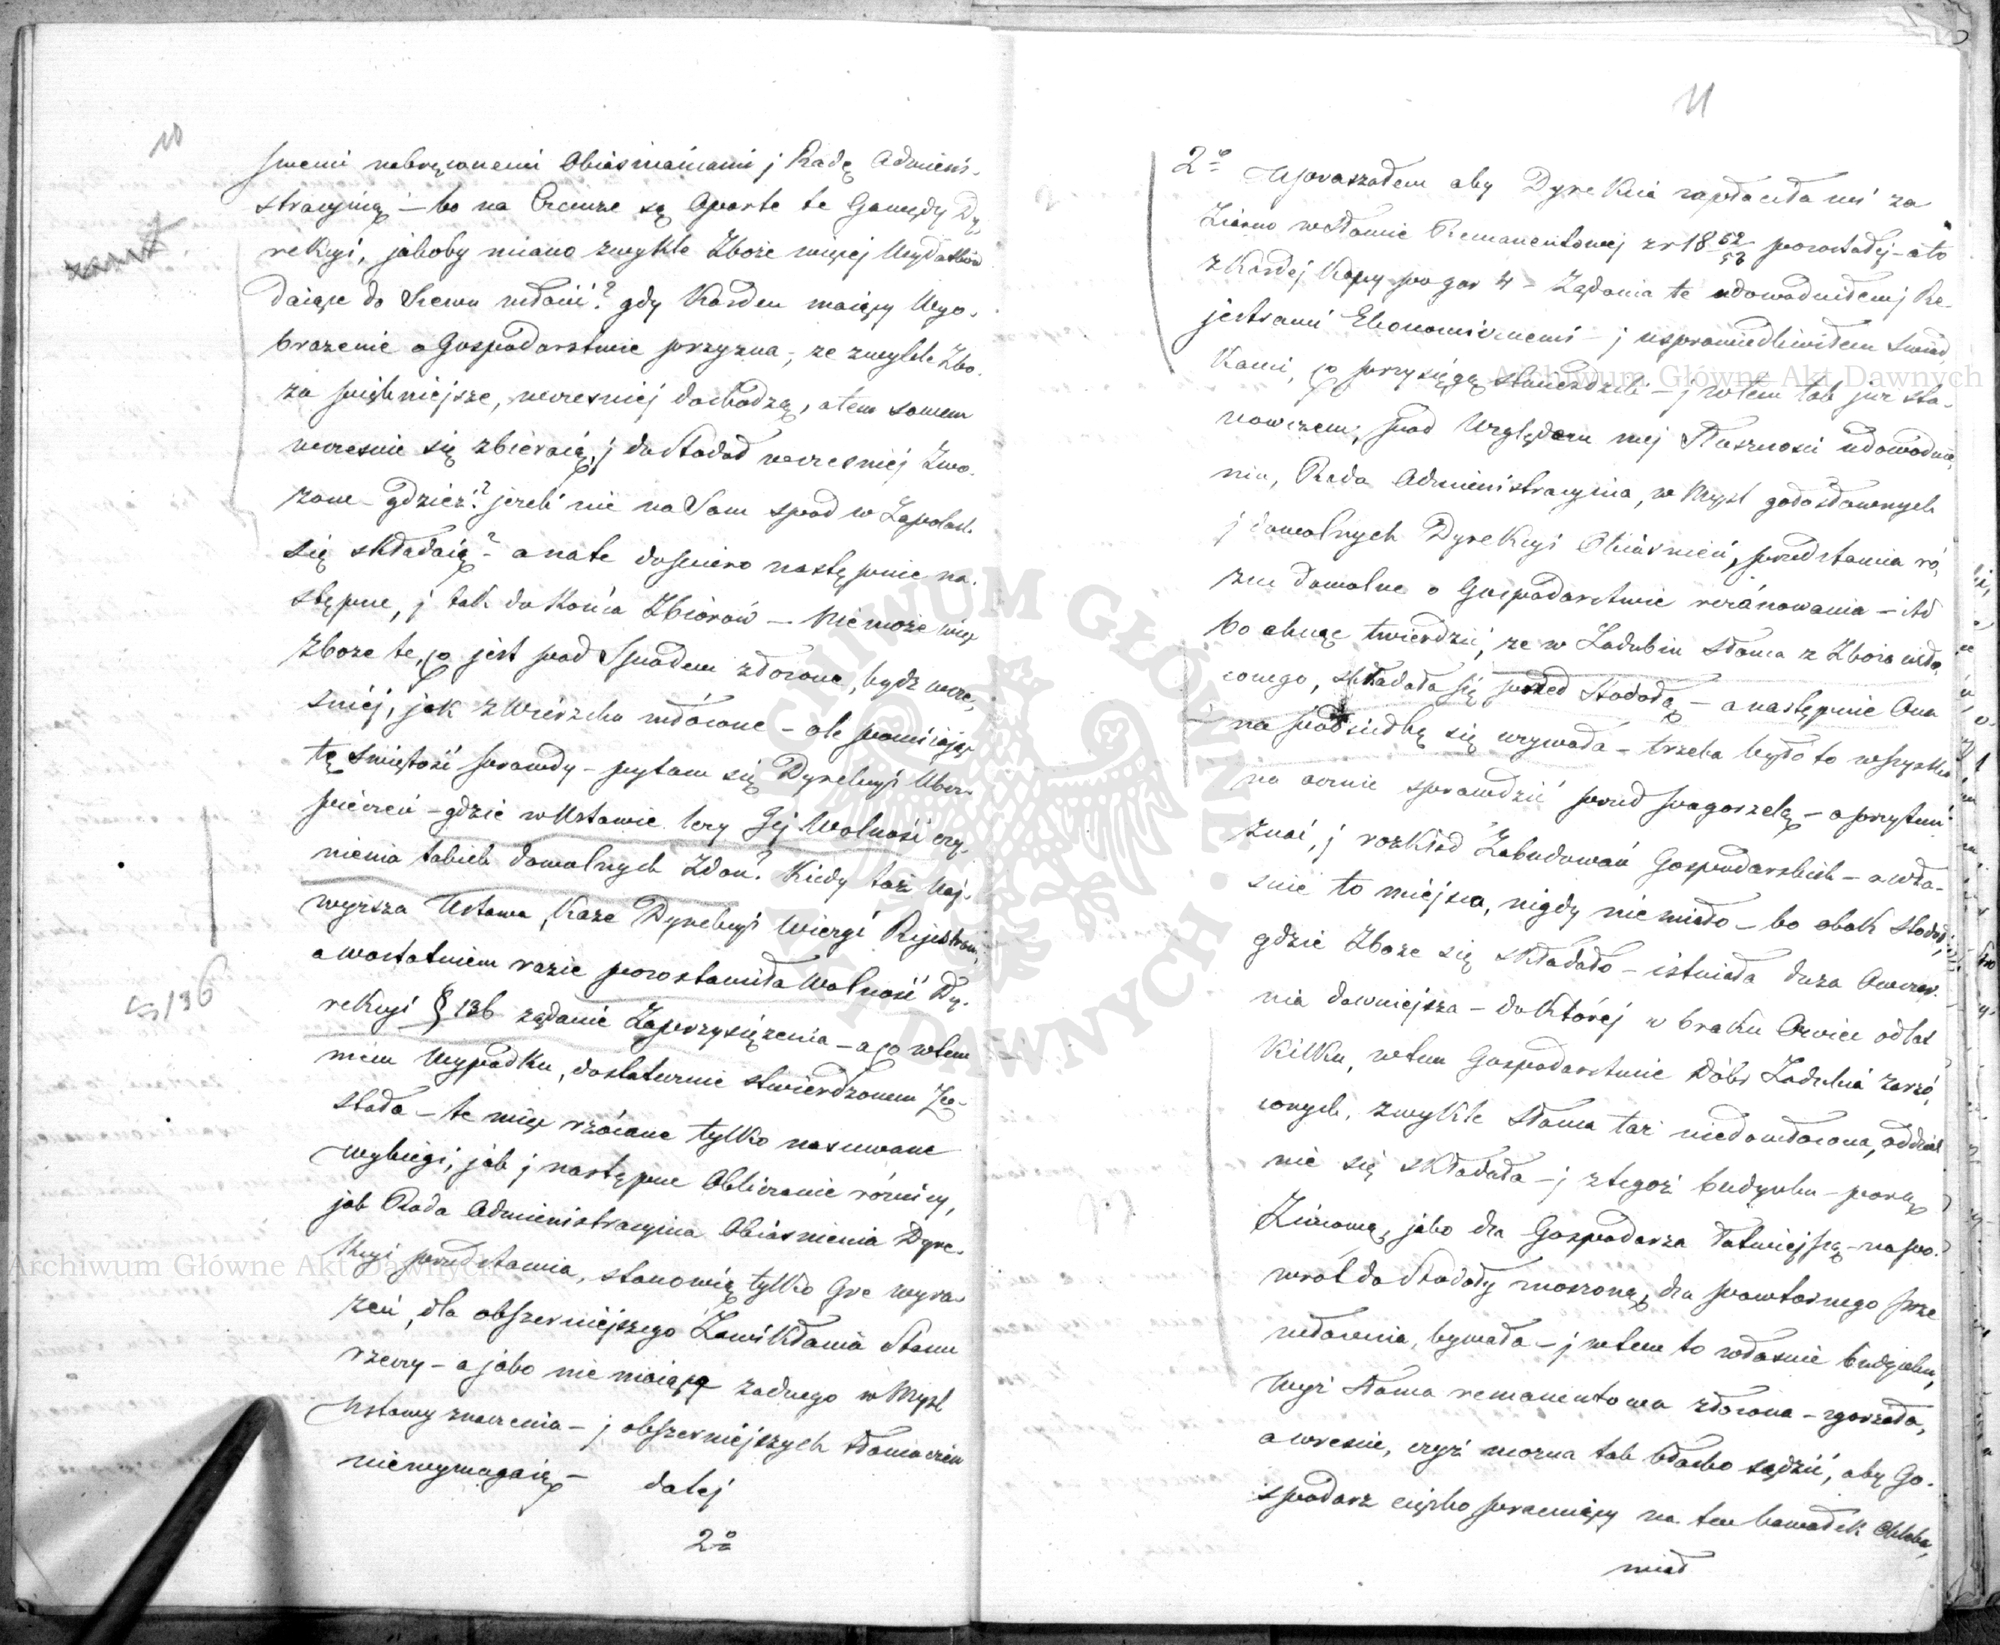 10
swemi nakręconemi Obiasnieniami j Radę Admini-
stracyjną – bo na Czemże są Oparte te Gawędy Dy-
rekcyi, jakoby miano zwykle Zboże więcej Wydatków
daiące do Siewu młócić? gdy Każden maiący Wyo-
brażenie o Gospodarstwie przyzna, ze zwykle Zbo-
ża piękniejsze, wcześniej dochodzą, a tem samem
wcześnie się zbieraią, j do Stodoł wcześniej Zwo-
żone – gdzież? jeżeli nie na Sam spod w Zapolach
się składaią? – a na te dopiero następnie na-
stępne, j tak do Końca Zbiorów – Nie może więc
Zboże te, co jest pod Spodem złożone, bydź wcze-
śniej, jak z Wierzchu młócone – ale pomiiając
tę świętość prawdy – pytam się Dyrekcyi Ubez-
pieczeń – gdzie w Ustawie leży Jej Wolność czy-
nienia takich dowolnych Zdań? Kiedy taż Naj-
wyższa Ustawa, Każe Dyrekcyi Wierzyć Rejestrom,
a w ostatniem razie pozostawiła Wolność Dy-
rekcyi § 136 żądanie Zaprzysiężenia – a co w tem
mem Wypadku, dostatecznie stwierdzonem Zo-
stało – te więc rzócane tylko nasuwane
wybiegi, jak j następne Obliczenie różnicy,
jak Rada Administracyjna Obiasnienia Dyre-
kcyi przedstawia, stanowią tylko Grę wyra-
zeń, dla obszerniejszego Zawikłania Stanu
rzeczy – a jako nie maiące żadnego w Myśl
Ustawy znaczenia – j obszerniejszych tłomaczeń
niewymagaią – dalej
2o
§ 136
11
2o Upraszałem aby Dyrekcia zapłaciła mi za
Ziarno w słomie Remanentowej z r 18 52/53 pozostałej – a to
z Każdej Kopy po gar 4 – Żądania te udowodniłem j Re-
jestrami Ekonomicznemi – j usprawiedliwiłem Swiad-
kami, co przysięgą stwierdzili – j w tem tak już sta-
nowczem, pod Względem mej Słuszności udowodnie-
niu, Rada Administracyjna, w Myśl gołosłownych
j dowolnych Dyrekcyi Obiasnień, przedstawia ró-
żne dowolne o Gospodarstwie rezónowania – itd
bo chcąc twierdzić, że w Zadubiu słoma z Zboża młó-
conego, składała się przed Stodołą – a następnie Ona
na podsiółkę się używała – trzeba było to wszystko
na ocznie sprawdzić przed pogorzelą – a przytem
Znać, j rozkład Zabudowań Gospodarskich – a wła-
śnie to miejsca, nigdy nie miało – bo obok Stodoł,
gdzie Zboże się składało – istniała duża Owczar-
nia dawniejsza – do Której w braku Owiec od lat
Kilku, w tem Gospodarstwie Dóbr Zadubia zarzó-
conych, zwykle słoma taż niedomłócona, oddziel-
nie się składała – j z tegoż budynku – porą
Zimową, jako dla Gospodarza łatwiejszą – na po-
wrót do Stodoły noszoną, dla powtórnego prze
młócenia, bywała – j w tem to właśnie budynku,
Wyż słoma remanentowa złożona – zgorzała,
a wreszcie, czyż można tak słabo sądzić, aby Go-
spodarz ciężko pracuiący na ten kawałek Chleba,
miał